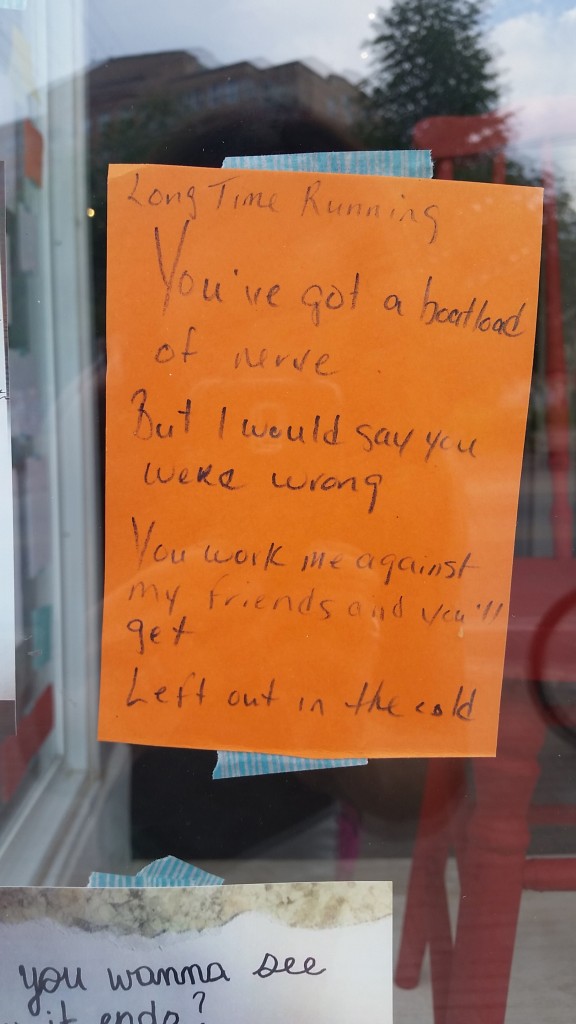 Long Time Running
You've got a boatload
of nerve
But I would say you
were wrong
You work me against
my friends and you'll
get
Left out in the cold
you wanna see
it ends?